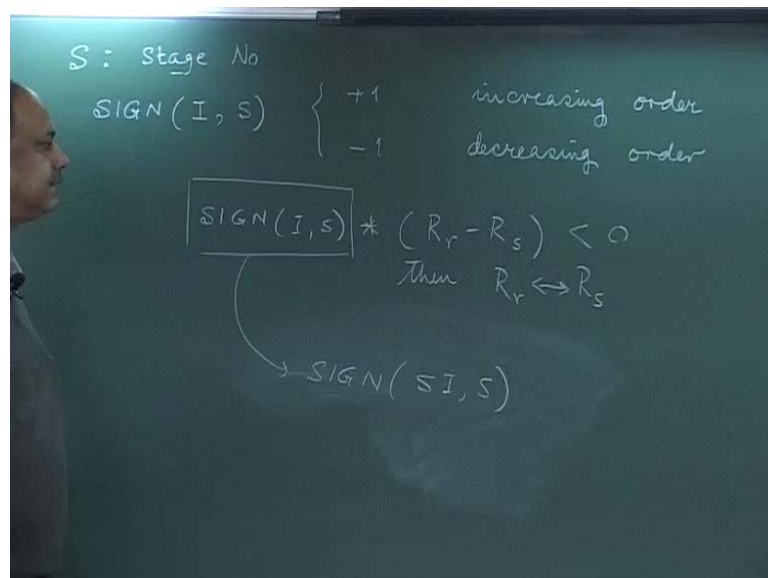 S : Stage No
SIGN(I, S) { +1 increasing order
-1 decreasing order
SIGN(I, S) * (Rr - Rs) < 0
Then Rr ↔ Rs
→ SIGN(SI, S)